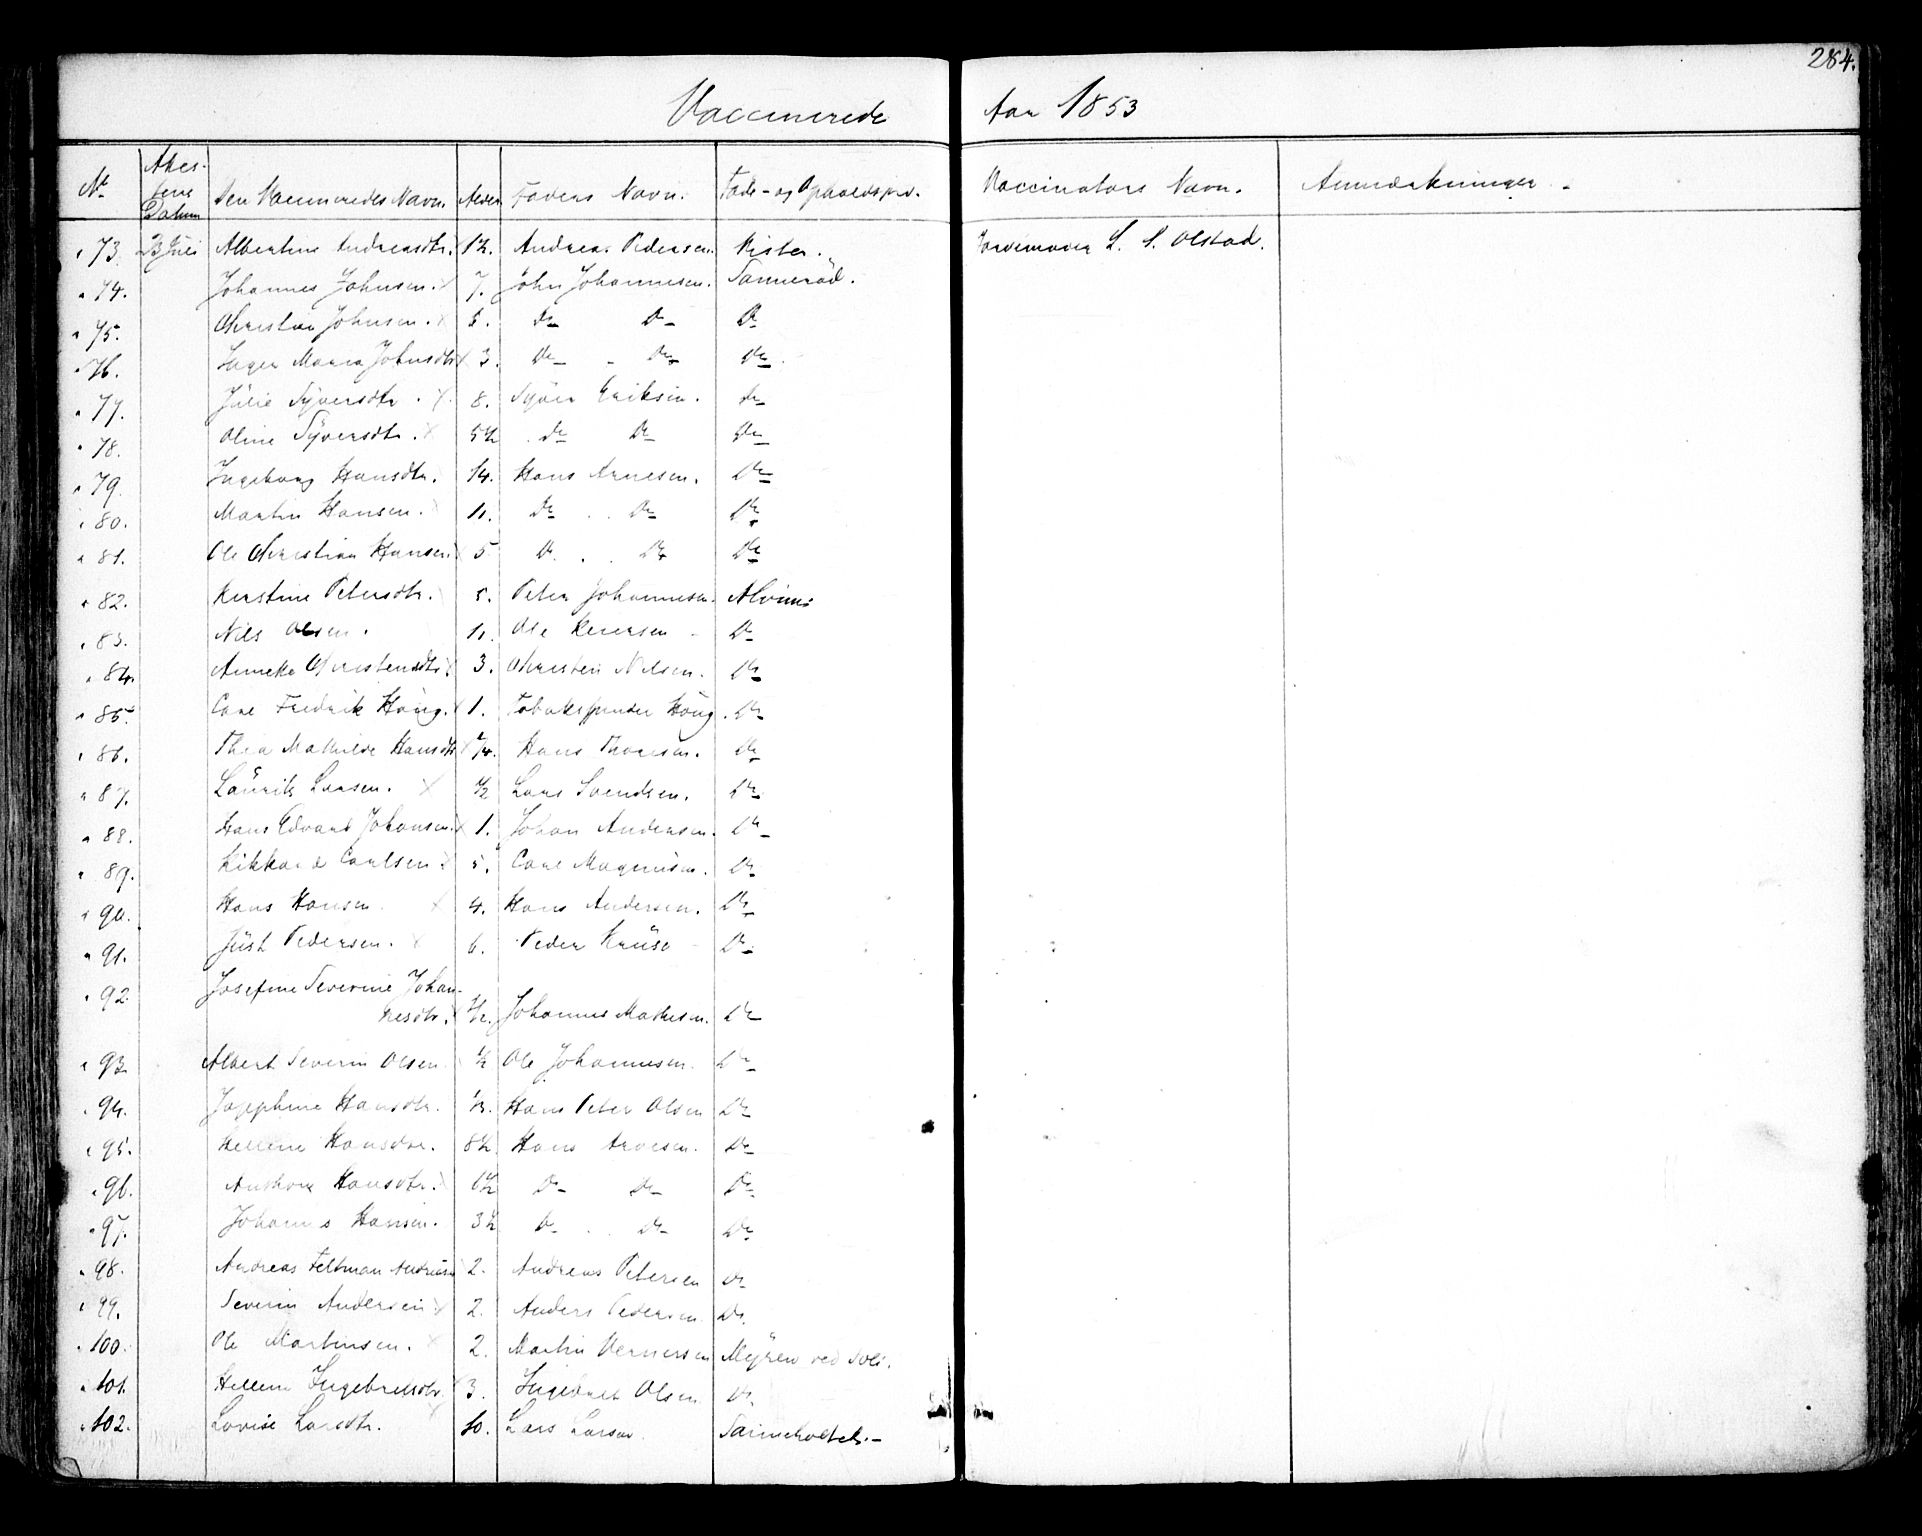 284.
Vaccinerede Aar 1853
No Attestens Datum Den Vaccineredes Navn. Alder Faders Navn. Føde- og Opholdssted. Vaccinators Navn. Anmærkninger
73. 23 Juli Albertine Andreasdtr. 1½. Andreas Pedersen. Jordemoder L. S. Olstad.
74. Johannes Johnsen. 7. John Johannesen. Sannerød.
75. Christian Johnsen. Do Do Do
76. Inger Maria Johnsdtr 3. Do Do Do
77. Julie Syversdtr. 8. Syver Eriksen. Do
78. Oline Syversdtr. 5½ Do Do Do
79. Ingeborg Hansdtr. 14. Hans Arnesen. Do
80. Martin Hansen. 11. Do Do Do
81. Ole Christian Hansen. 5 Do Do Do
82. Kirstine Petersdtr. 5. Peter Johannesen. Alvim
83. Nils Olsen. Ole Do
84. Christensdtr 3. Christen Nilsen. Do
85. Carl Fredrik Høug. 1. Tobakspinder Høug. Do
86. Thea Mathilde Hansdtr ¼. Hans Thoresen. Do
87. Laurits Larsen. ½ Lars Svendsen. Do
88. Hans Edvard Johansen. 1. Johan Andersen. Do
89. Rikkard Carlsen. 5. Carl Magnusen. Do
90. Hans Hansen. 4. Hans Andersen. Do
91. Just Pedersen. 6. Peder Kruse Do
92. Josefine Severine Johan-
nesdtr. ½. Johannes Do
93. Albert Severin Olsen ½ Ole Johannesen. Do
94. Josephine Hansdtr. Hans Peter Olsen Do
95. Hellene Hansdtr. 8½ Hans Arnesen. Do
96. Hansdtr. 6½ Do Do Do
97. Johannes Hansen. 3½ Do Do Do
98. Andreas Feltman Andreasen 2. Andreas Petersen Do
99. Severin Andersen 2. Anders Pedersen. Do.
100. Ole Martinsen. 2. Martin Vernersen Myhren ved
101. Hellene Ingebretsdtr 3. Ingebret Olsen Do.
102. Lovise Larsdtr. 10. Lars Larsen